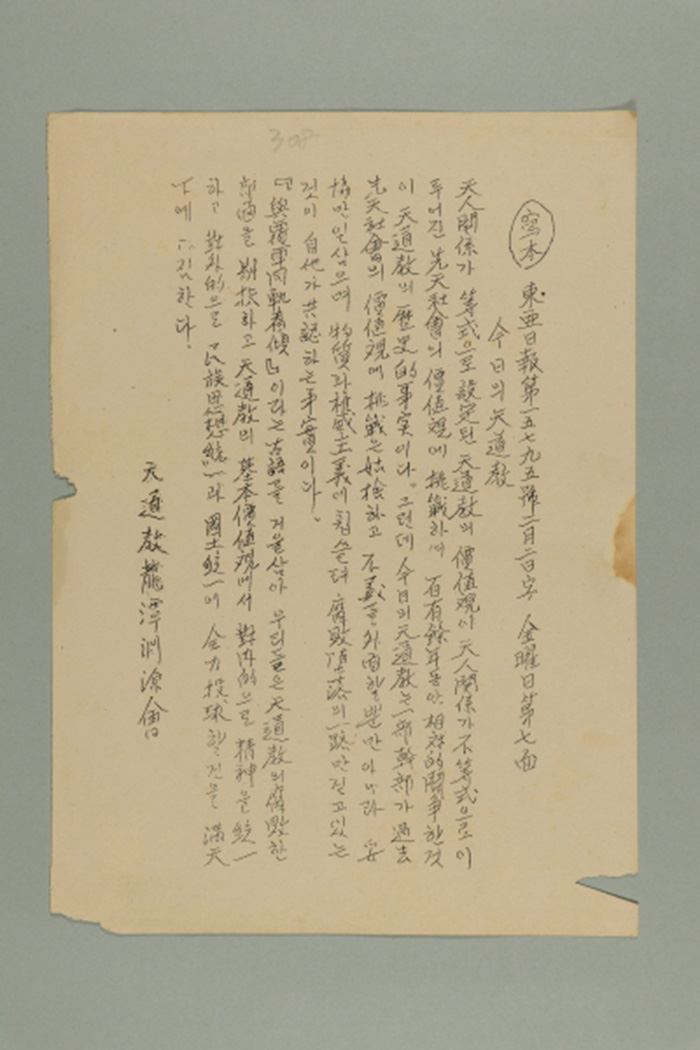 308
寫本
東亜日報第一五七九五號 二月二日字 金曜日 第七面
今日의 天道敎
天人關係가 等式으로 設定된 天道敎의 價値観이 天人関係가 不等式으로 이
루어진 先天社會의 價値観에 挑戰하며 百有餘年동안 相対的鬪爭한것
이 天道敎의 歷史的事実이다。그런데 今日의 天道敎는 一部幹部가 過去
先天社會의 價値観에 挑戰은 姑捨하고 不義를 外面할뿐만 아니라
만 일삼으며 物質과 権威主義에 휩쓸려 腐敗墮落의 一路만 걷고있는
것이 自他가 共認하는 事實이다。
『與覆車同軌者傾』이라는 古語를 거울삼아 우리들은 天道敎의 腐敗한
을 하고 天道敎의 基本價値观에서 對內的으로 精神을 統一
하고 對外的으로 民族思想統一과 國土統一에 全力投球할것을 滿天
下에 다짐한다.
天道敎龍潭淵源會